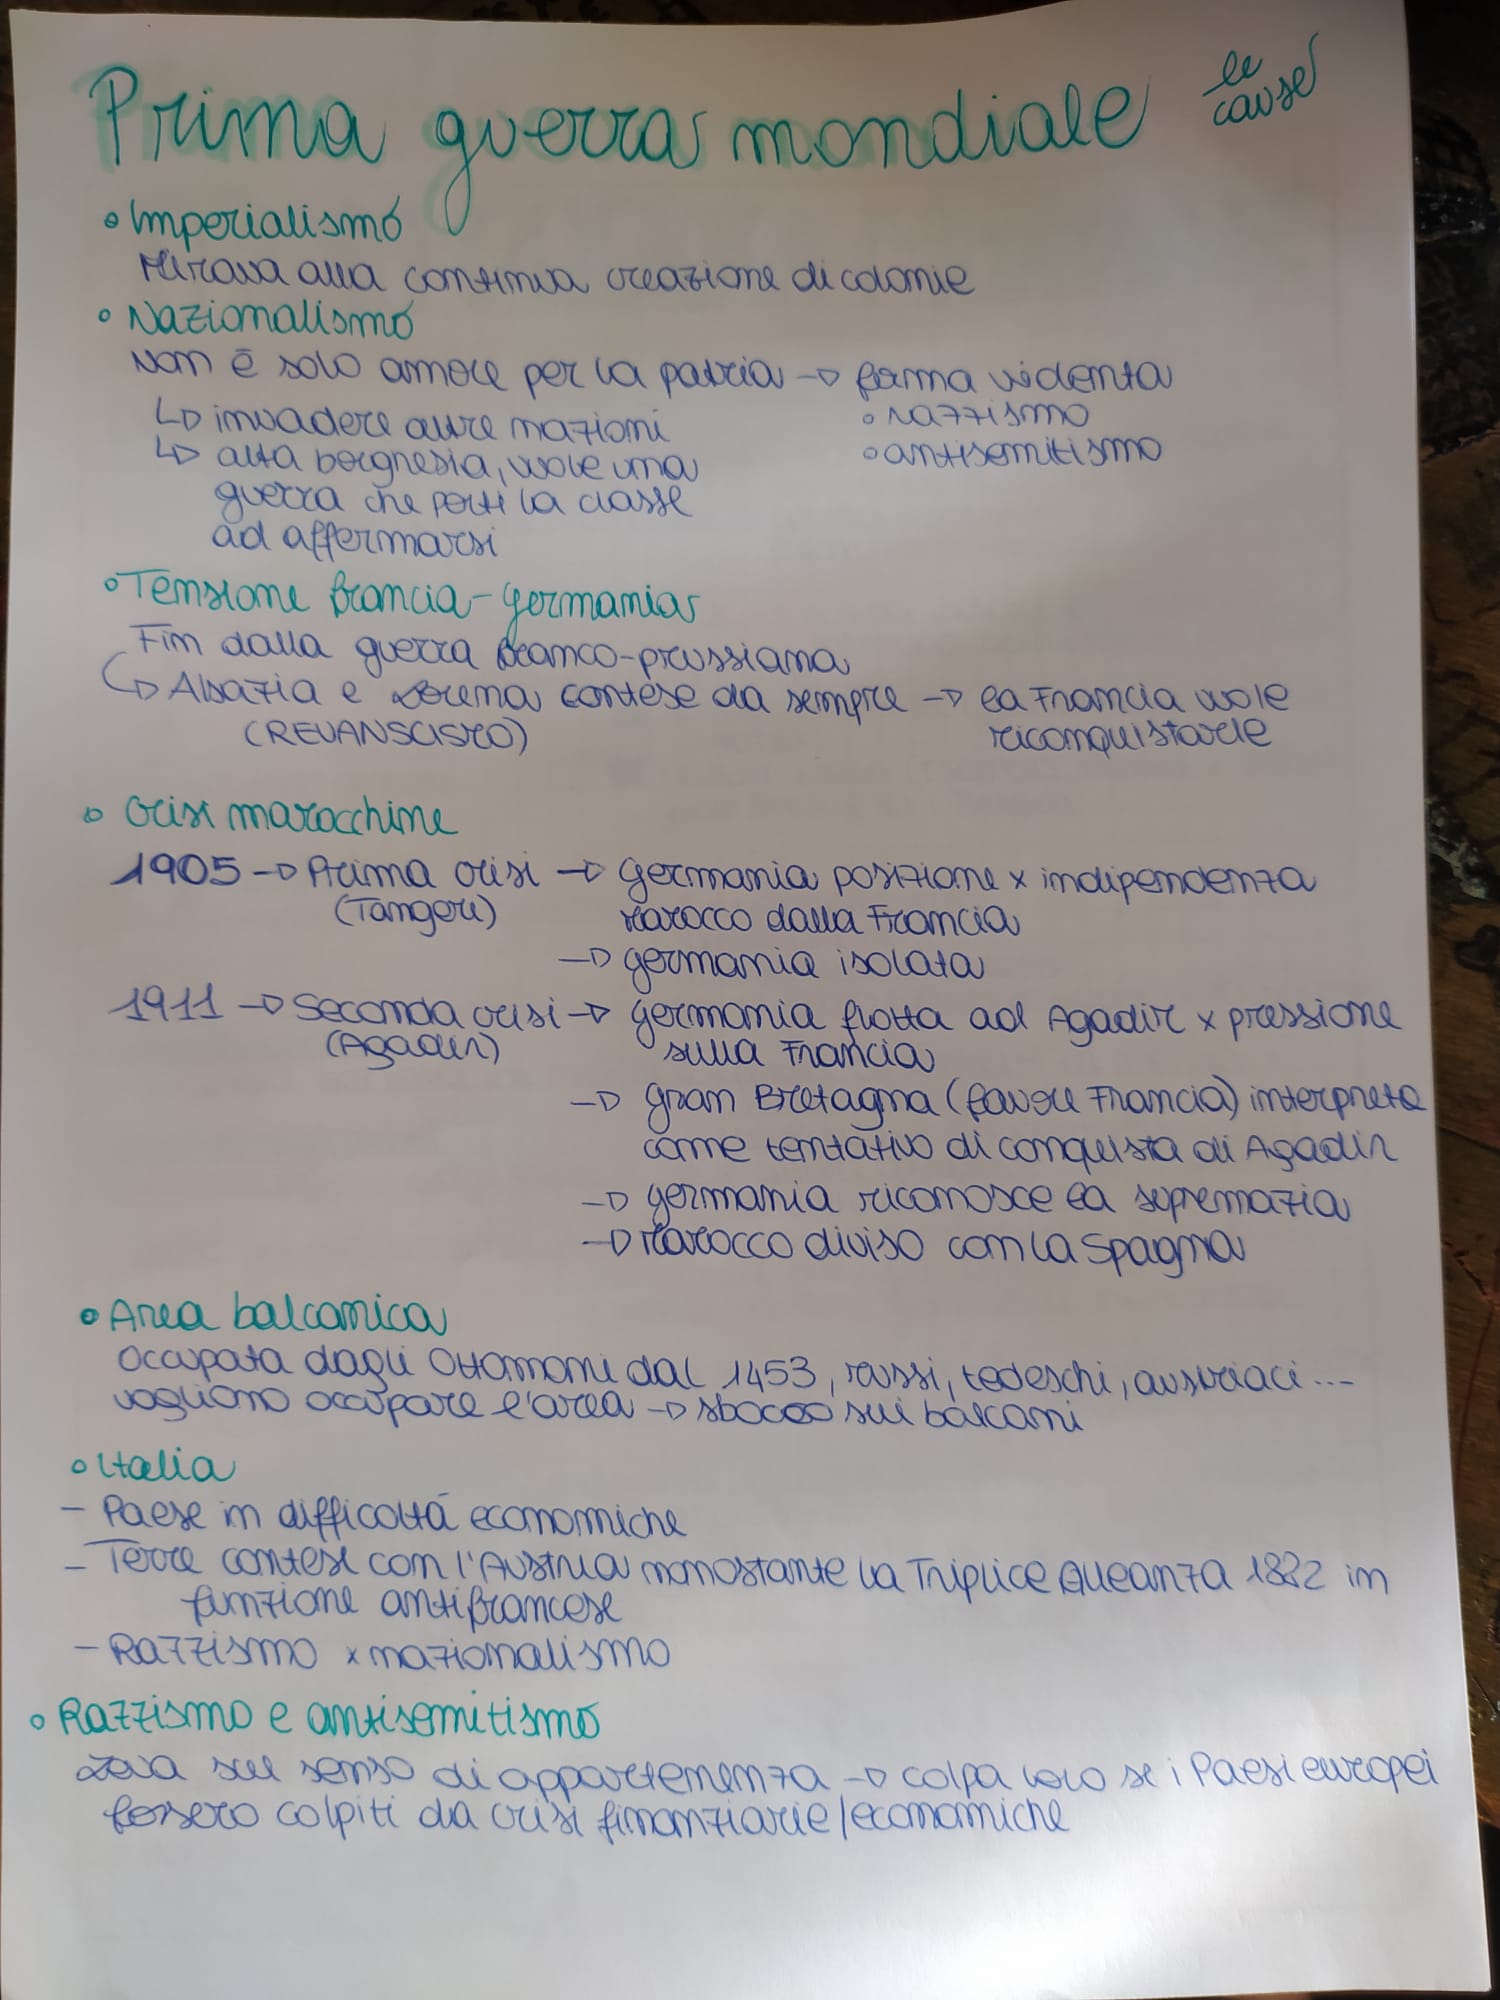 Prima guerra mondiale le cause
• Imperialismo
Mirava alla continua creazione di colonie
• Nazionalismo
Non è solo amore per la patria → forma violenta
↳ invadere altre nazioni • razzismo
↳ alta borghesia, vuole una • antisemitismo
guerra che porti la classe
ad affermarsi
• Tensione Francia-Germania
Fin dalla guerra franco-prussiana
↳ Alsazia e Lorena contese da sempre → la Francia vuole
(REVANSCISMO) riconquistarle
• Crisi marocchine
1905 → Prima crisi → Germania posizione x indipendenza
(Tangeri) Marocco dalla Francia
→ Germania isolata
1911 → Seconda crisi → Germania flotta ad Agadir x pressione
(Agadir) sulla Francia
→ Gran Bretagna (favore Francia) interpreta
come tentativo di conquista di Agadir
→ Germania riconosce la supremazia
→ Marocco diviso con la Spagna
• Area balcanica
Occupata dagli Ottomani dal 1453, russi, tedeschi, austriaci...
vogliono occupare l'area → sbocco sui balcani
• Italia
- Paese in difficoltà economiche
- Terre contese con l'Austria nonostante la Triplice Alleanza 1882 in
funzione antifrancese
- Razzismo x nazionalismo
• Razzismo e antisemitismo
Leva sul senso di appartenenza → colpa loro se i Paesi europei
fossero colpiti da crisi finanziarie/economiche